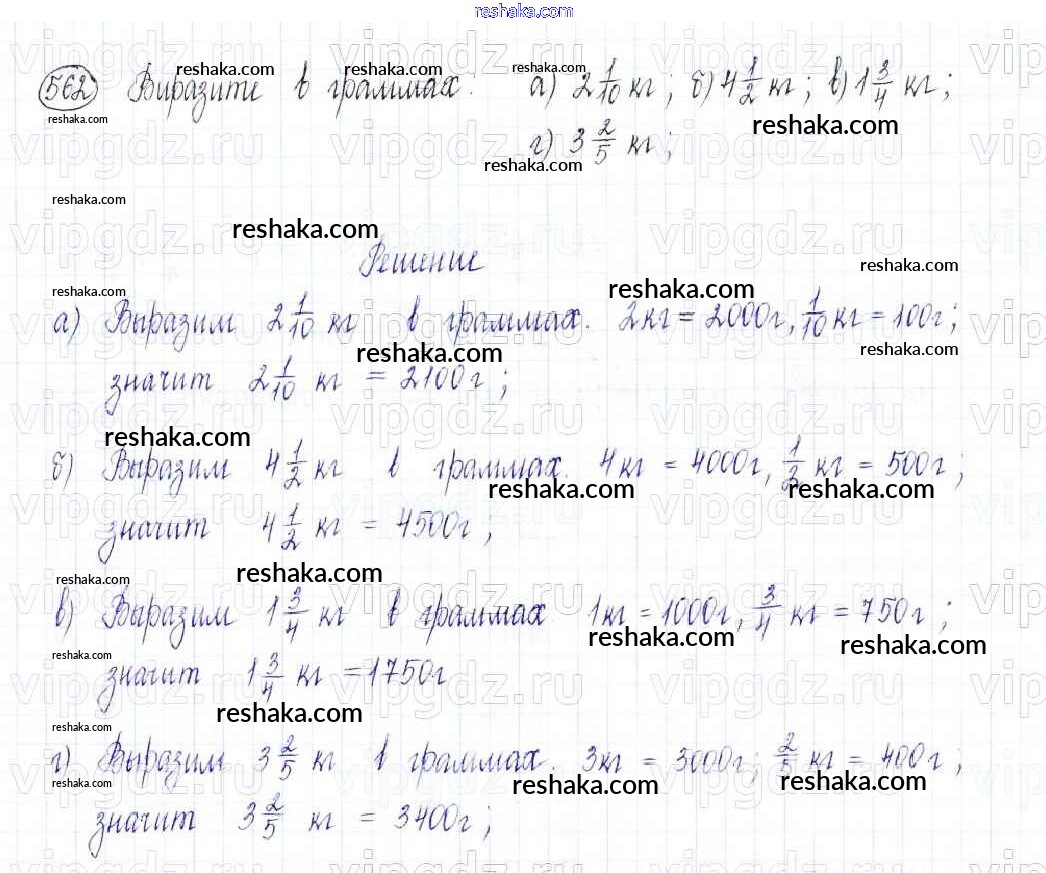 reshaka.com
562 Виразите в граммах: а) 2 1/10 кг; б) 4 1/2 кг; в) 1 3/4 кг;
г) 3 2/5 кг;
Решение
а) Выразим 2 1/10 кг в граммах. 2кг = 2000г, 1/10 кг = 100г;
значит 2 1/10 кг = 2100г;
б) Выразим 4 1/2 кг в граммах. 4кг = 4000г, 1/2 кг = 500г;
значит 4 1/2 кг = 4500г;
в) Выразим 1 3/4 кг в граммах 1кг = 1000г, 3/4 кг = 750г;
значит 1 3/4 кг = 1750г
г) Выразим 3 2/5 кг в граммах. 3кг = 3000г; 2/5 кг = 400г;
значит 3 2/5 кг = 3400г;